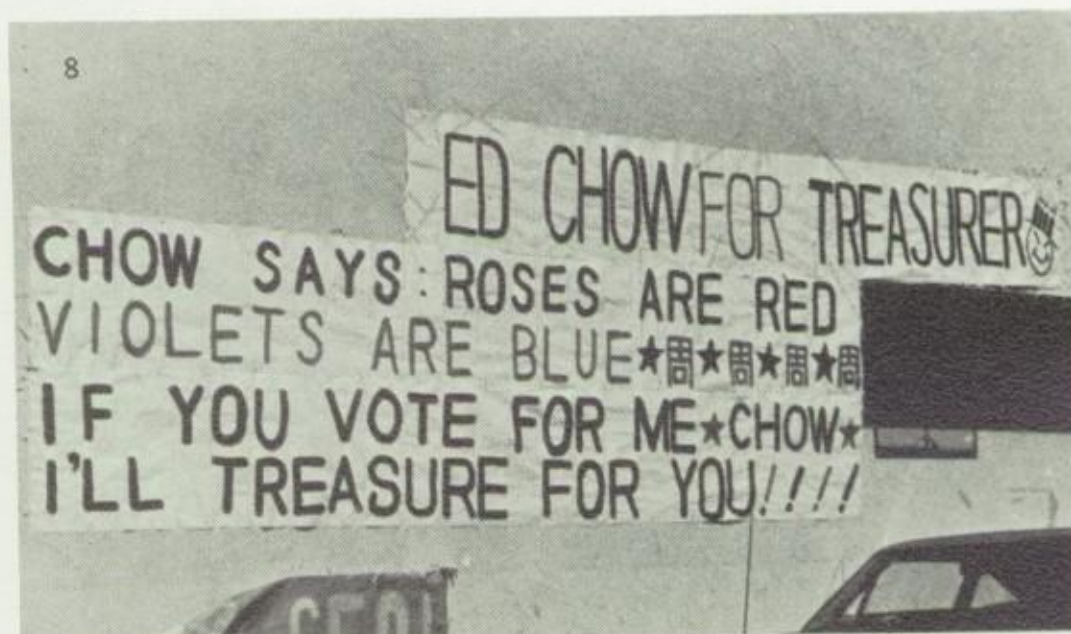 8
ED CHOW FOR TREASURER
CHOW SAYS: ROSES ARE RED
VIOLETS ARE BLUE★周★周★周★周
IF YOU VOTE FOR ME★CHOW★
I'LL TREASURE FOR YOU!!!!